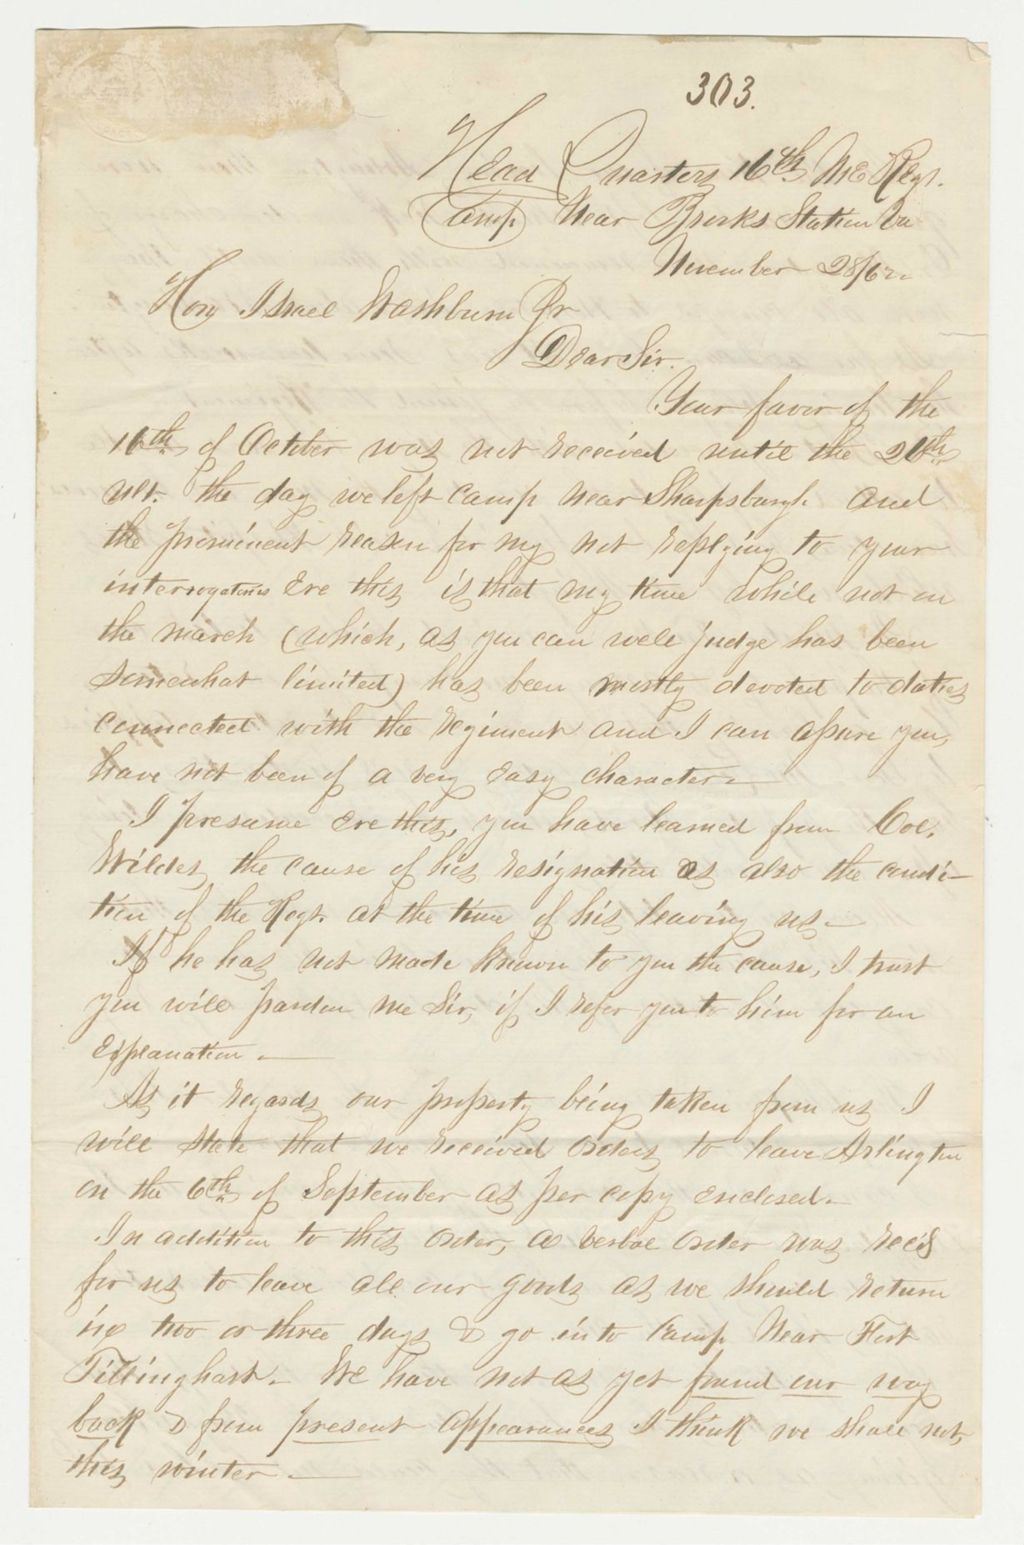 303.
Head Quarters 16th Me Regt.
Camp Near Brooks Station Va
November 28/62.
Hon Israel Washburn Jr
Dear Sir.
Your favor of the
16th of October was not received until the 26th
ult. the day we left camp near Sharpsburgh and
the prominent reason for my not replying to your
interrogatories ere this is that my time while not on
the march (which, as you can well judge has been
somewhat limited) has been mostly devoted to duties
connected with the regiment and I can assure you,
have not been of a very easy character.
I presume ere this, you have learned from Col.
Wildes, the cause of his resignation as also the condi-
tion of the Regt. at the time of his leaving us.
If he has not made known to you the cause, I trust
you will pardon me Sir, if I refer you to him for an
explanation.
As it regards our property being taken from us I
will state that we received orders to leave Arlington
on the 6th of September as per copy enclosed.
In addition to this order, a verbal order was recd
for us to leave all our goods as we should return
in two or three days & go into camp Near Fort
Tillinghast. We have not as yet found our way
back & from present appearances I think we shall not,
this winter.